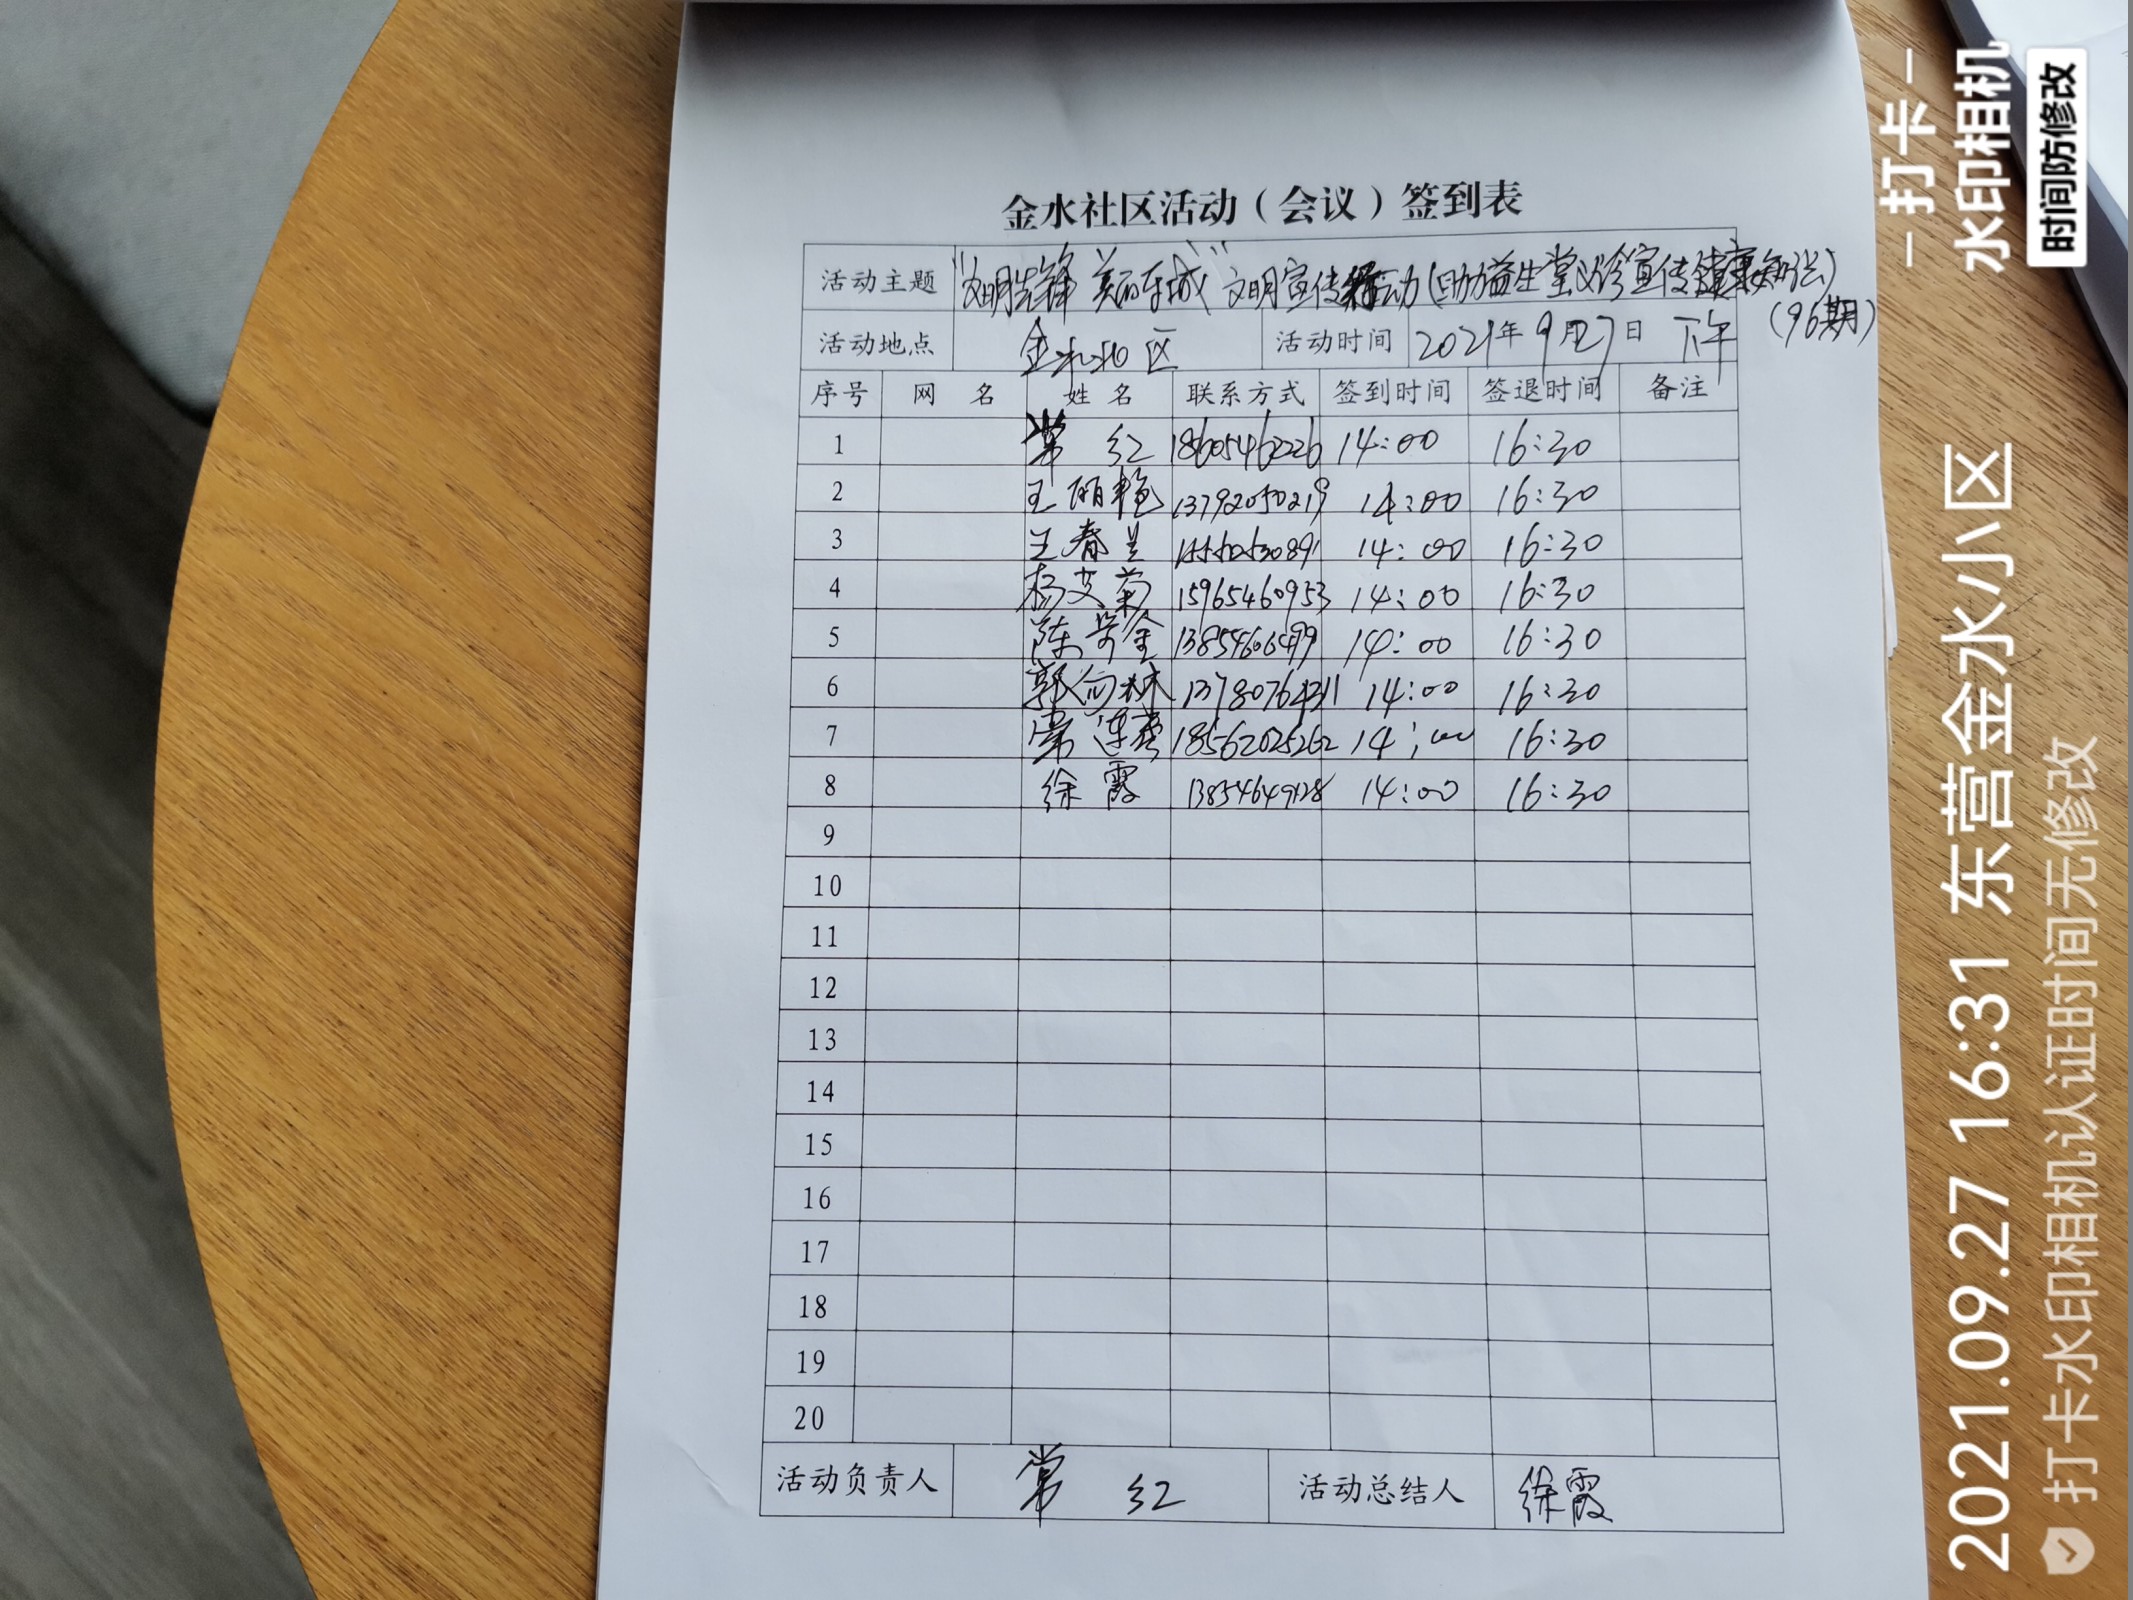 金水社区活动（会议）签到表
活动主题 “文明先锋 美丽东城” 文明宣传活动(助力益生堂义诊宣传健康知识)
(96期)
活动地点 金水北区 活动时间 2021年9月27日 下午
序号 网 名 姓 名 联系方式 签到时间 签退时间 备注
1 常 红 14:00 16:30
2 王丽艳 13792050219 14:00 16:30
3 王春兰 14:00 16:30
4 杨艾菊 15965460953 14:00 16:30
5 陈 金 14:00 16:30
6 郭向林 14:00 16:30
7 常连 18562025262 14:00 16:30
8 徐霞 13854649128 14:00 16:30
9
10
11
12
13
14
15
16
17
18
19
20
活动负责人 常 红 活动总结人 徐霞
打卡
水印相机
时间防修改
2021.09.27 16:31 东营金水小区
打卡水印相机认证时间无修改